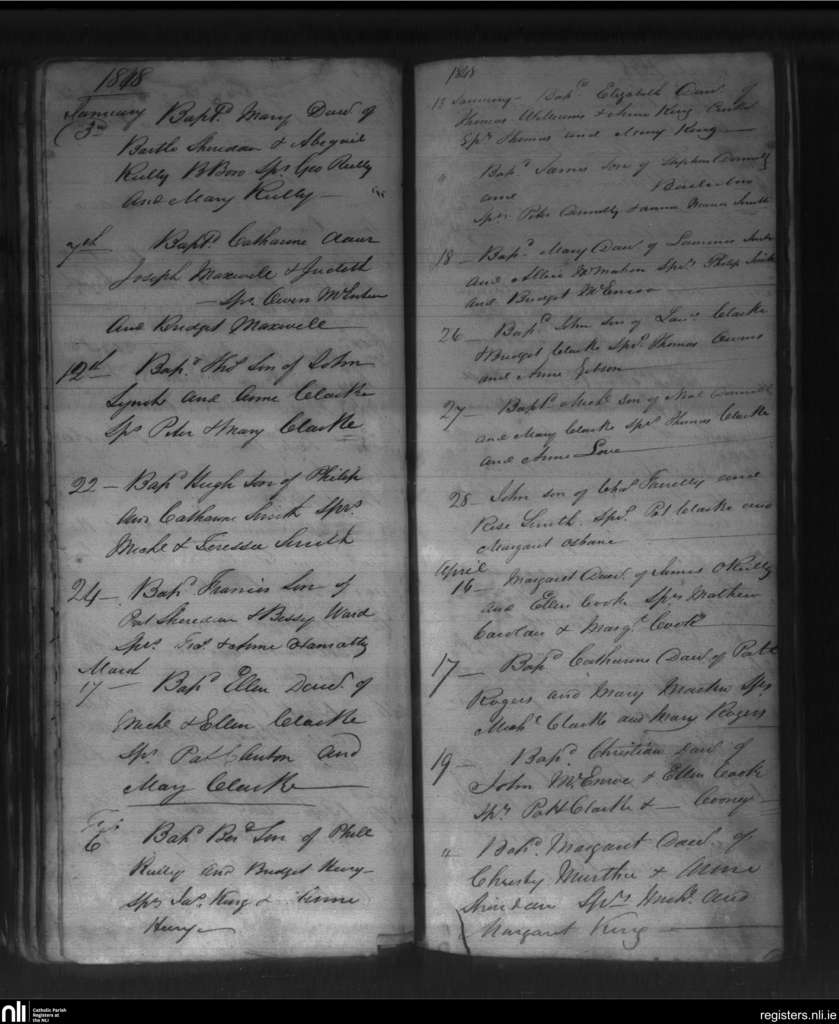 1848
January Bapt.d Mary Daur. of
3rd
Bartle Sheridan & Abigail
Reilly B Boro Sprs Geo Reilly
and Mary Reilly
7th Bapt.d Catharine daur
Joseph Maxwell & Judeth
Sprs Owen McEntee
and Bridget Maxwell
12th Bapd Thos Son of John
Lynch and Anne Clarke
Sprs Peter & Mary Clarke
22 Bapd Hugh Son of Philip
and Catharine Smith Sprs.
Michl & Teressa Smith
24 Bapd Francis Son of
Pat Sheridan & Bessy Ward
Sprs. & Anne
March
17 Bapd Ellen Daur. of
Michl & Ellen Clarke
Sprs. Patt and
Mary Clarke
6 Bapd Son of Phill
Reilly and Bridget Henry
Sprs Jas. King & Anne
Henry
1848
15 January Bapd. Elizabeth Daur. of
Thomas Williams & Anne King
Sprs Thomas and Mary King
" Bapd James Son of Stephen Connolly
and
Sprs. Peter Connolly & Smith
18 Bapd. Mary Daur. of Laurence Smith
and Alice McMahon Sprs. Philip Smith
and Bridget McEnroe
26 Bapd John Son of Laur. Clarke
& Bridget Clarke Sprs. Thomas Owens
and Anne Gibson
27 Bapd. Michl Son of
and Mary Clarke Sprs Thomas Clarke
and Anne Love
28 John son of Farrelly and
Rose Smith. Sprs. Pat Clarke and
Margaret Osbane
April
16 Margaret Daur. of James O'Reilly
and Ellen Cook Sprs Mathew
Carolan & Margt. Cook
17 Bapd Catharine Daur. of Patt
Rogers and Mary Sprs
Michl Clarke and Mary Rogers
19 Bapd. Christian Daur. of
John McEnroe & Ellen Cook
Sprs Patt Clarke & Cooney
" Bapd. Margaret Daur. of
Christy Murtha & Anne
Sheridan Sprs Michl. and
Margaret King
nli
Catholic Parish
Registers at
the NLI
registers.nli.ie